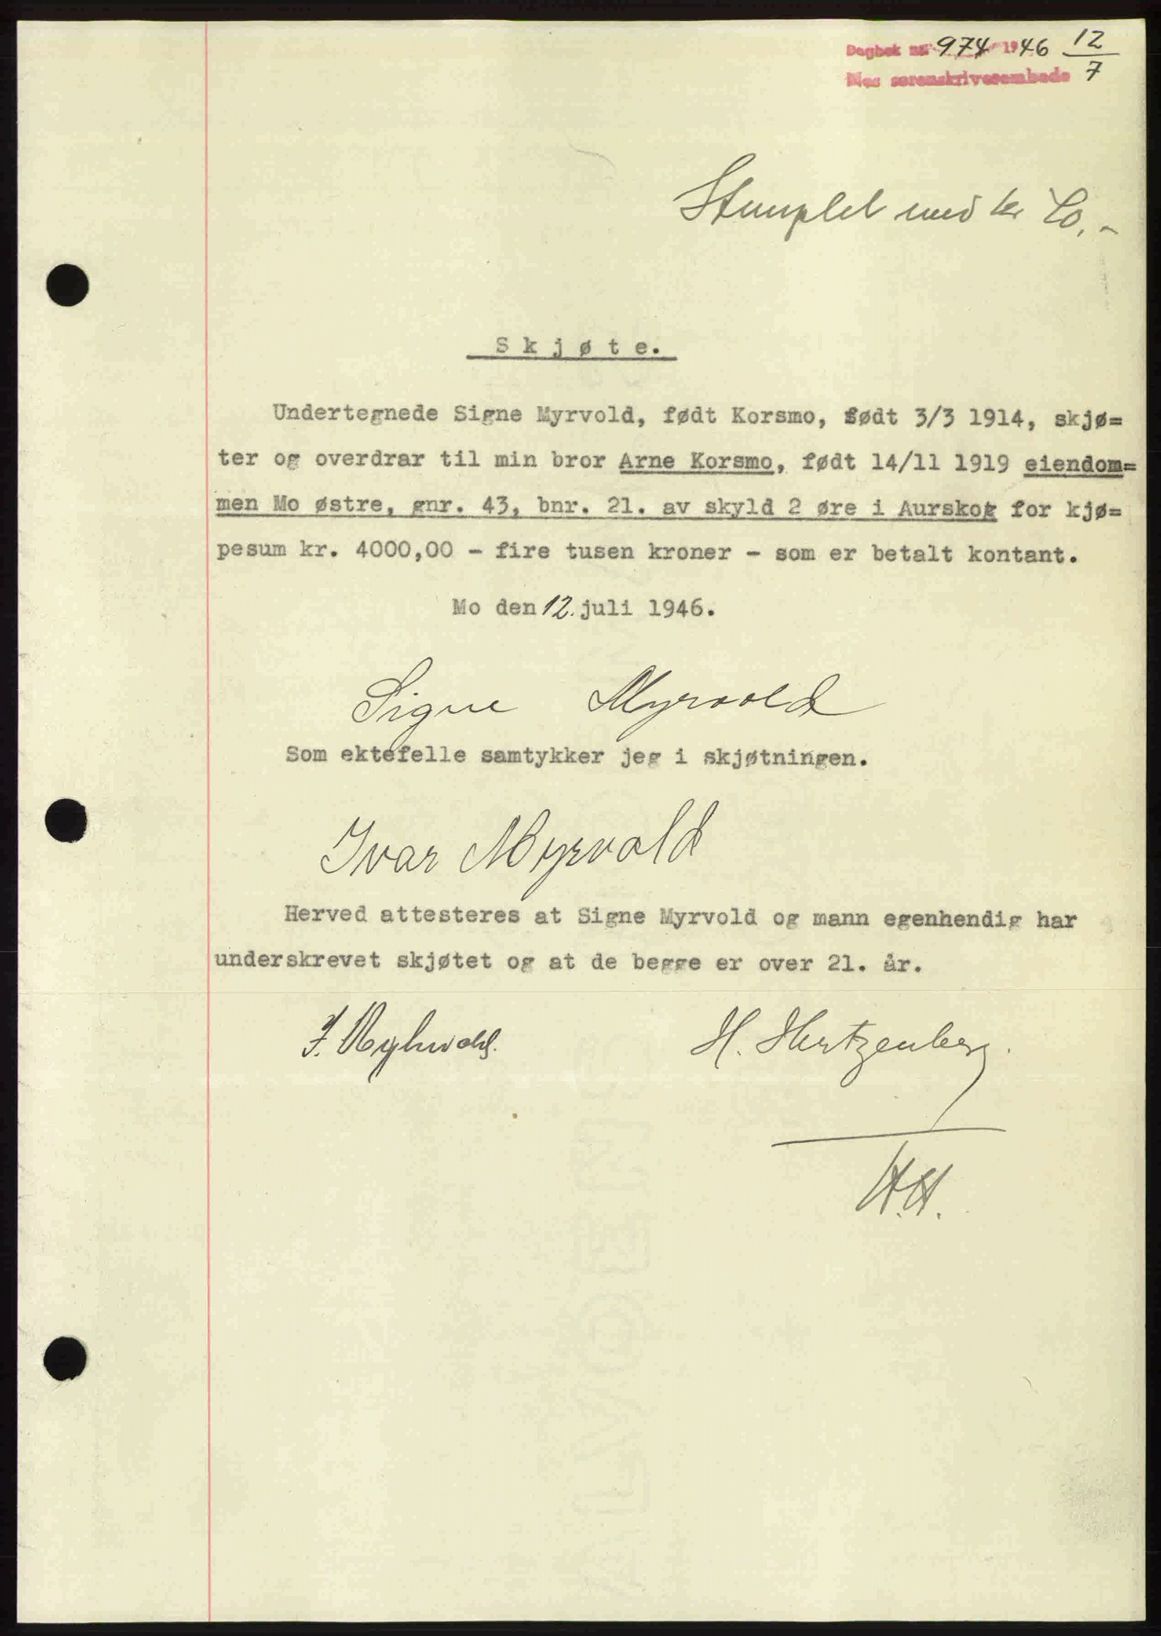 Dagbok nr. 974 1946 12/7
Nes sorenskriverembede
Stemplet med kr
Skjøte.
Undertegnede Signe Myrvold, født Korsmo, født 3/3 1914, skjø=
ter og overdrar til min bror Arne Korsmo, født 14/11 1919 eiendom=
men Mo østre, gnr. 43, bnr. 21. av skyld 2 øre i Aurskog for kjø=
pesum kr. 4000,00 - fire tusen kroner - som er betalt kontant.
Mo den 12. juli 1946.
Signe Myrvold
Som ektefelle samtykker jeg i skjøtningen.
Ivar Myrvold
Herved attesteres at Signe Myrvold og mann egenhendig har
underskrevet skjøtet og at de begge er over 21. år.
H. Hertzenberg.
H.H.